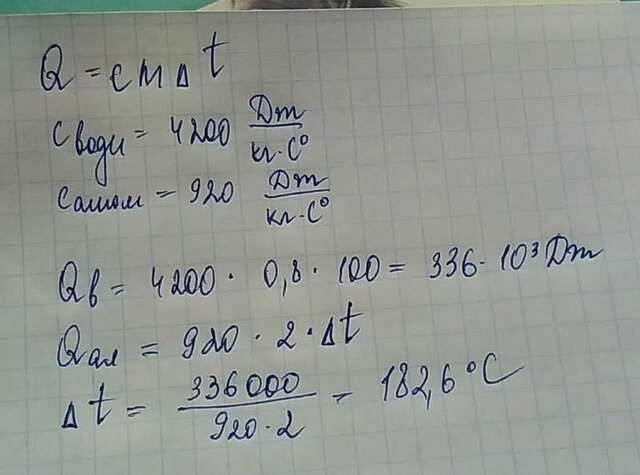 Q = cm∆t
c води = 4200 Дж/кг·C°
c алюм = 920 Дж/кг·C°
Qв = 4200 · 0,8 · 100 = 336 · 10³ Дж
Qал = 920 · 2 · ∆t
∆t = 336000/920·2 = 182,6°C